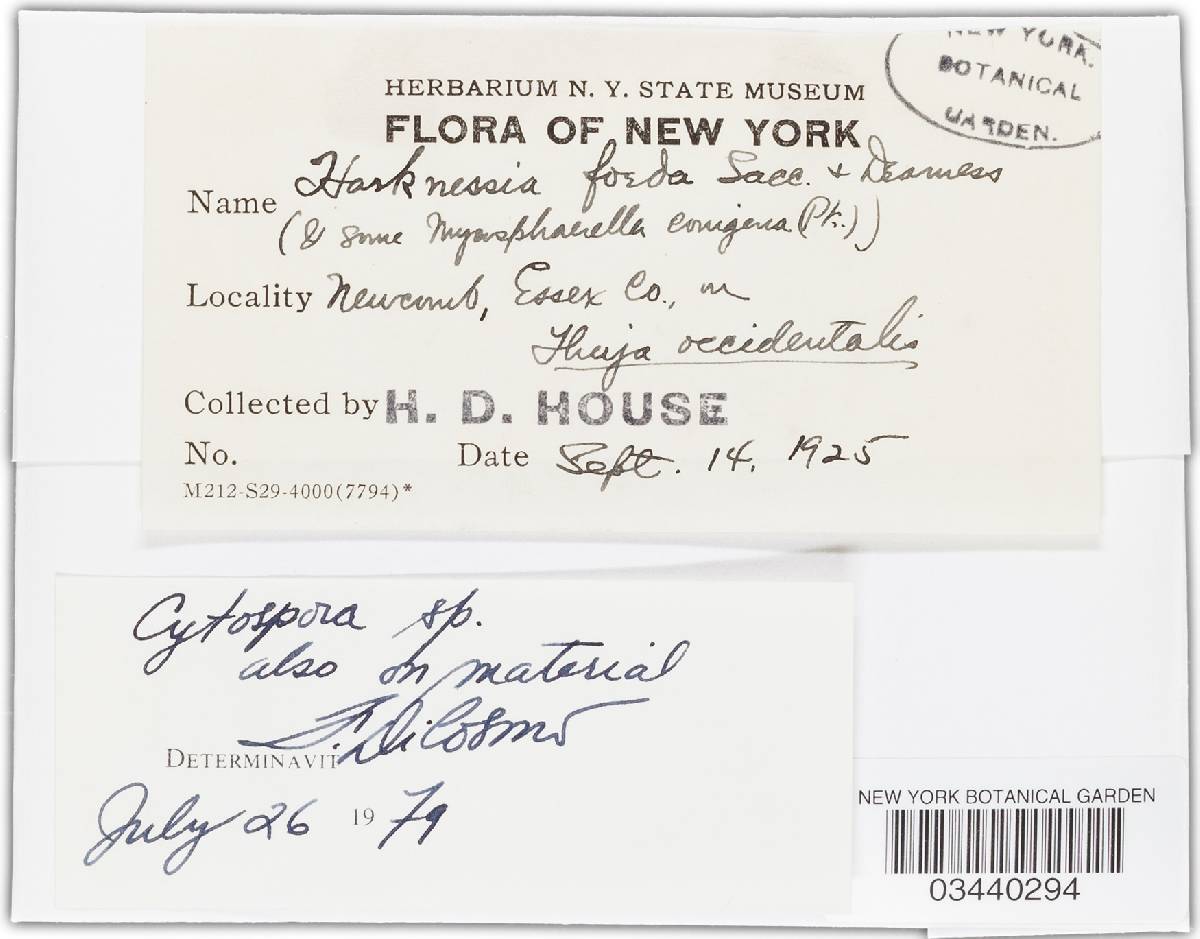 NEW YORK.
BOTANICAL
GARDEN.
HERBARIUM N. Y. STATE MUSEUM
FLORA OF NEW YORK
Name Harknessia foeda Sacc. & Dearness
(& some Mycosphaerella conigena (Pk.))
Locality Newcomb, Essex Co., on
Thuja occidentalis
Collected by H. D. HOUSE
No. Date Sept. 14, 1925
M212-S29-4000(7794)*
Cytospora sp.
also on material
DETERMINAVIT F. DiCosmo
July 26 1979
NEW YORK BOTANICAL GARDEN
03440294